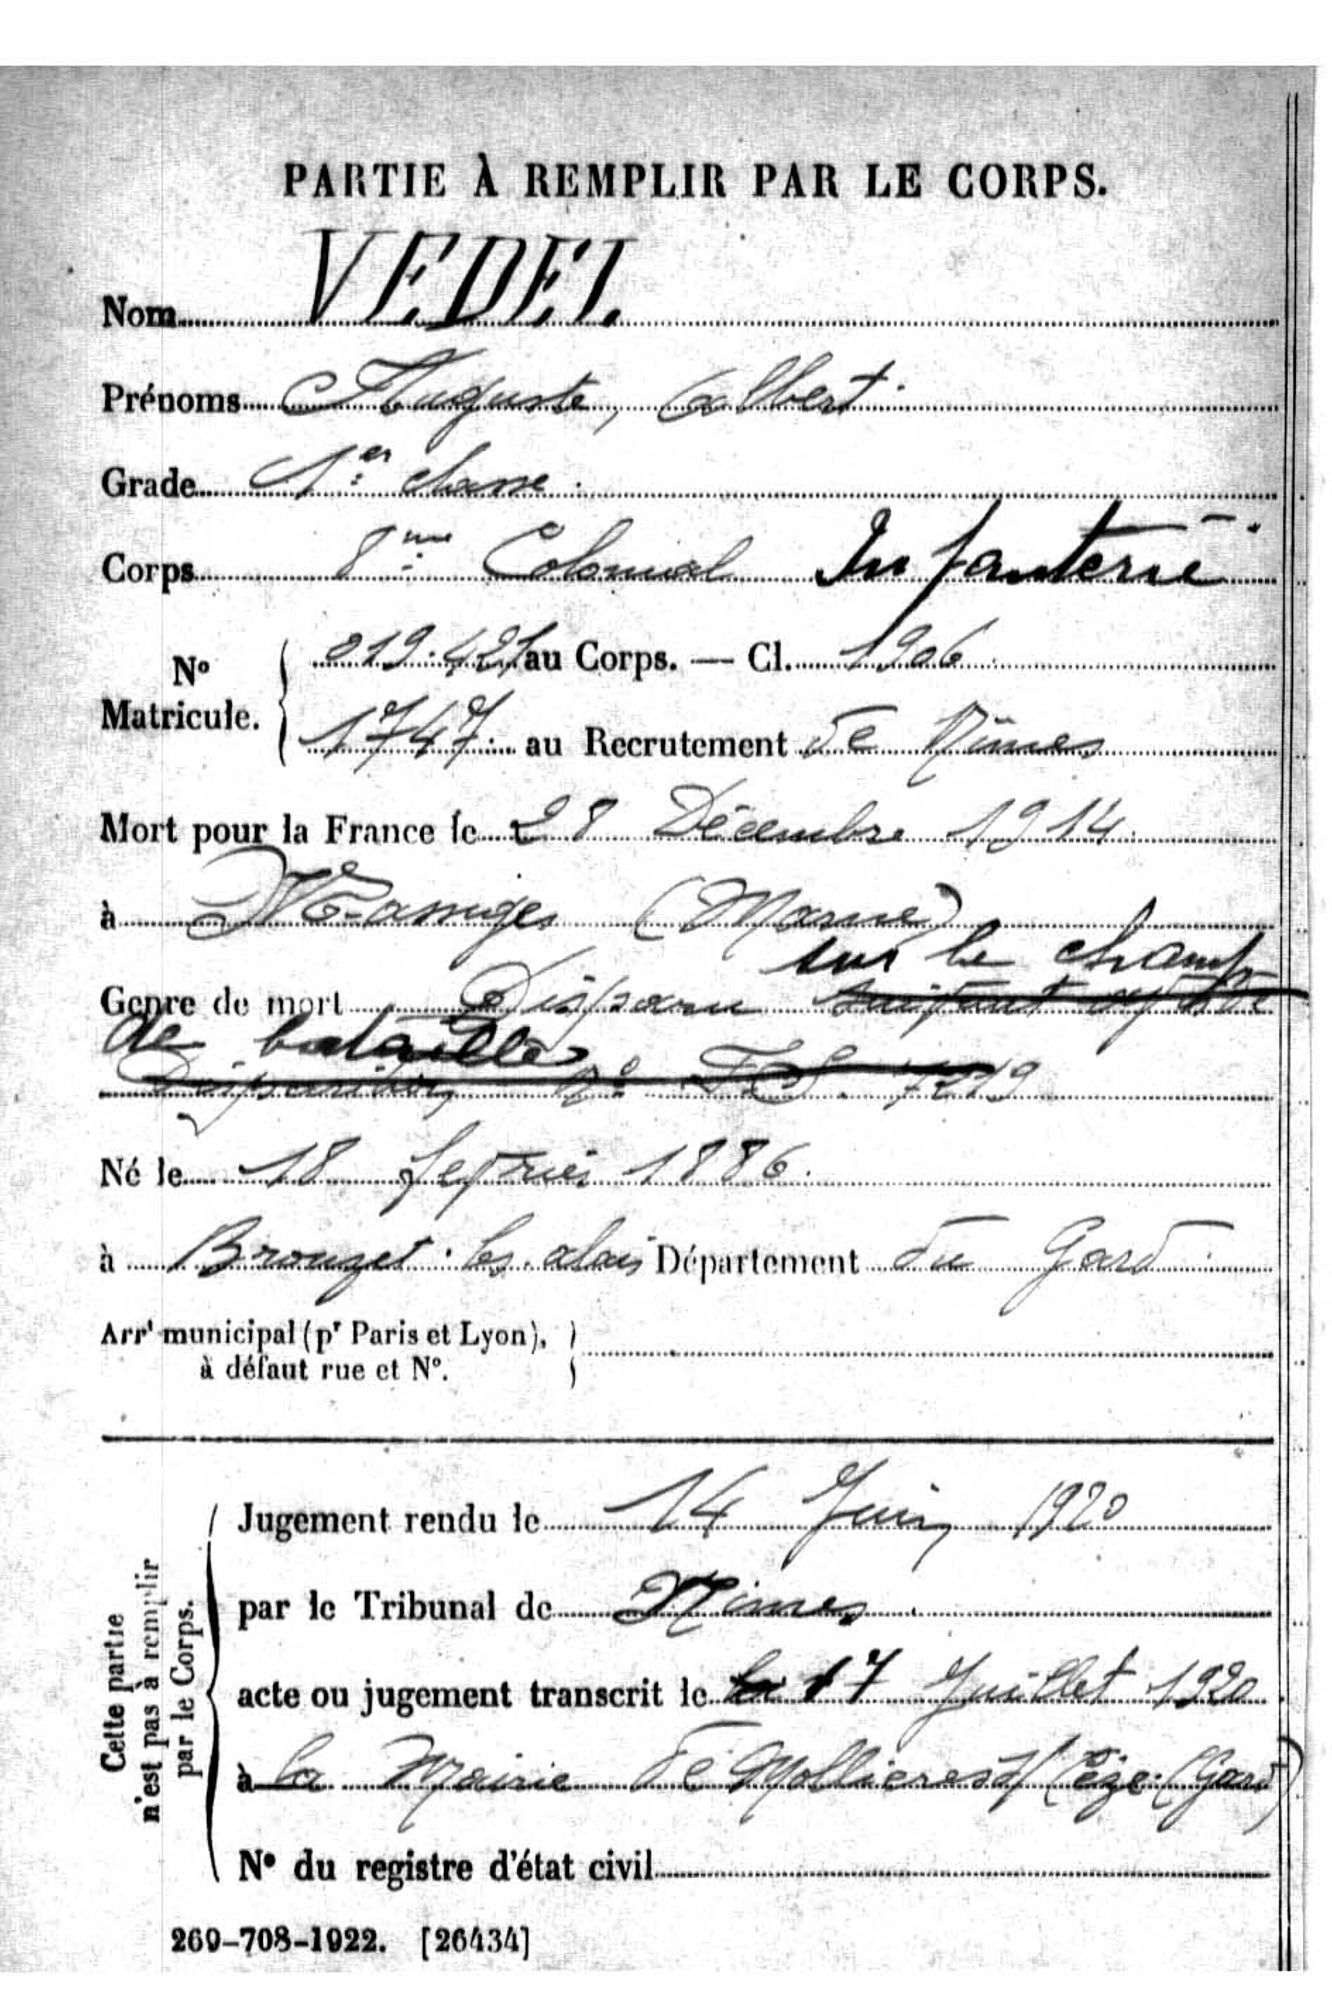 PARTIE À REMPLIR PAR LE CORPS.
Nom VEDEL
Prénoms Auguste, Albert.
Grade 1er classe.
Corps 8me Colonial Infanterie.
No Matricule. 019.421 au Corps. — Cl. 1906
1747. au Recrutement de Nîmes
Mort pour la France le 28 Décembre 1914.
à (Marne)
sur le champ
Genre de mort Disparu suivant
de bataille
Disparition no F.S. 7219
Né le 18 fevrier 1886.
à Brouzet. les. alais Département du Gard.
Arrt municipal (pr Paris et Lyon),
à défaut rue et No.
Jugement rendu le 14 Juin 1920
par le Tribunal de Nimes
acte ou jugement transcrit le le 17 Juillet 1920
à la Mairie de Mollieres s/ Cèze. (Gard)
No du registre d'état civil
Cette partie
n'est pas à remplir
par le Corps.
269-708-1922. [26434]